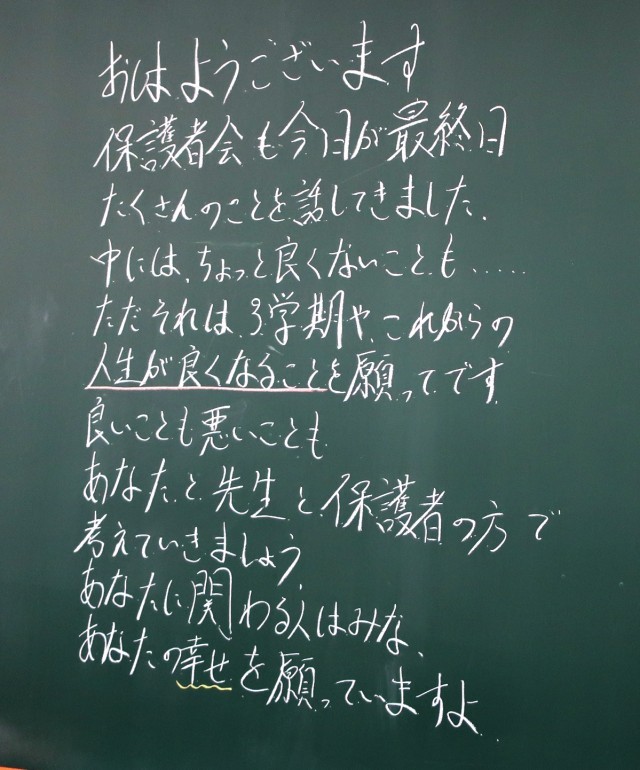 おはようございます
保護者会も今日が最終日
たくさんのことを話してきました。
中には、ちょっと良くないことも……
ただそれは、3学期や、これからの
人生が良くなることを願ってです
良いことも悪いことも
あなたと先生と保護者の方で
考えていきましょう。
あなたに関わる人はみな、
あなたの幸せを願っていますよ。